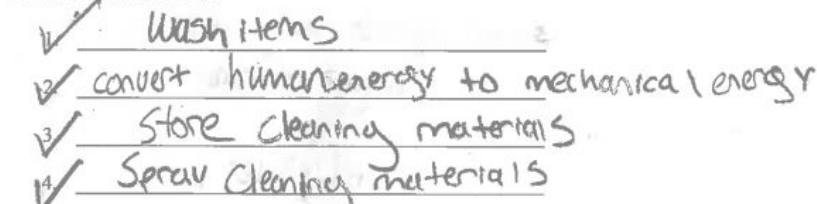 1. Wash items
2. convert human energy to mechanical energy
3. Store cleaning materials
4. Spray Cleaning materials